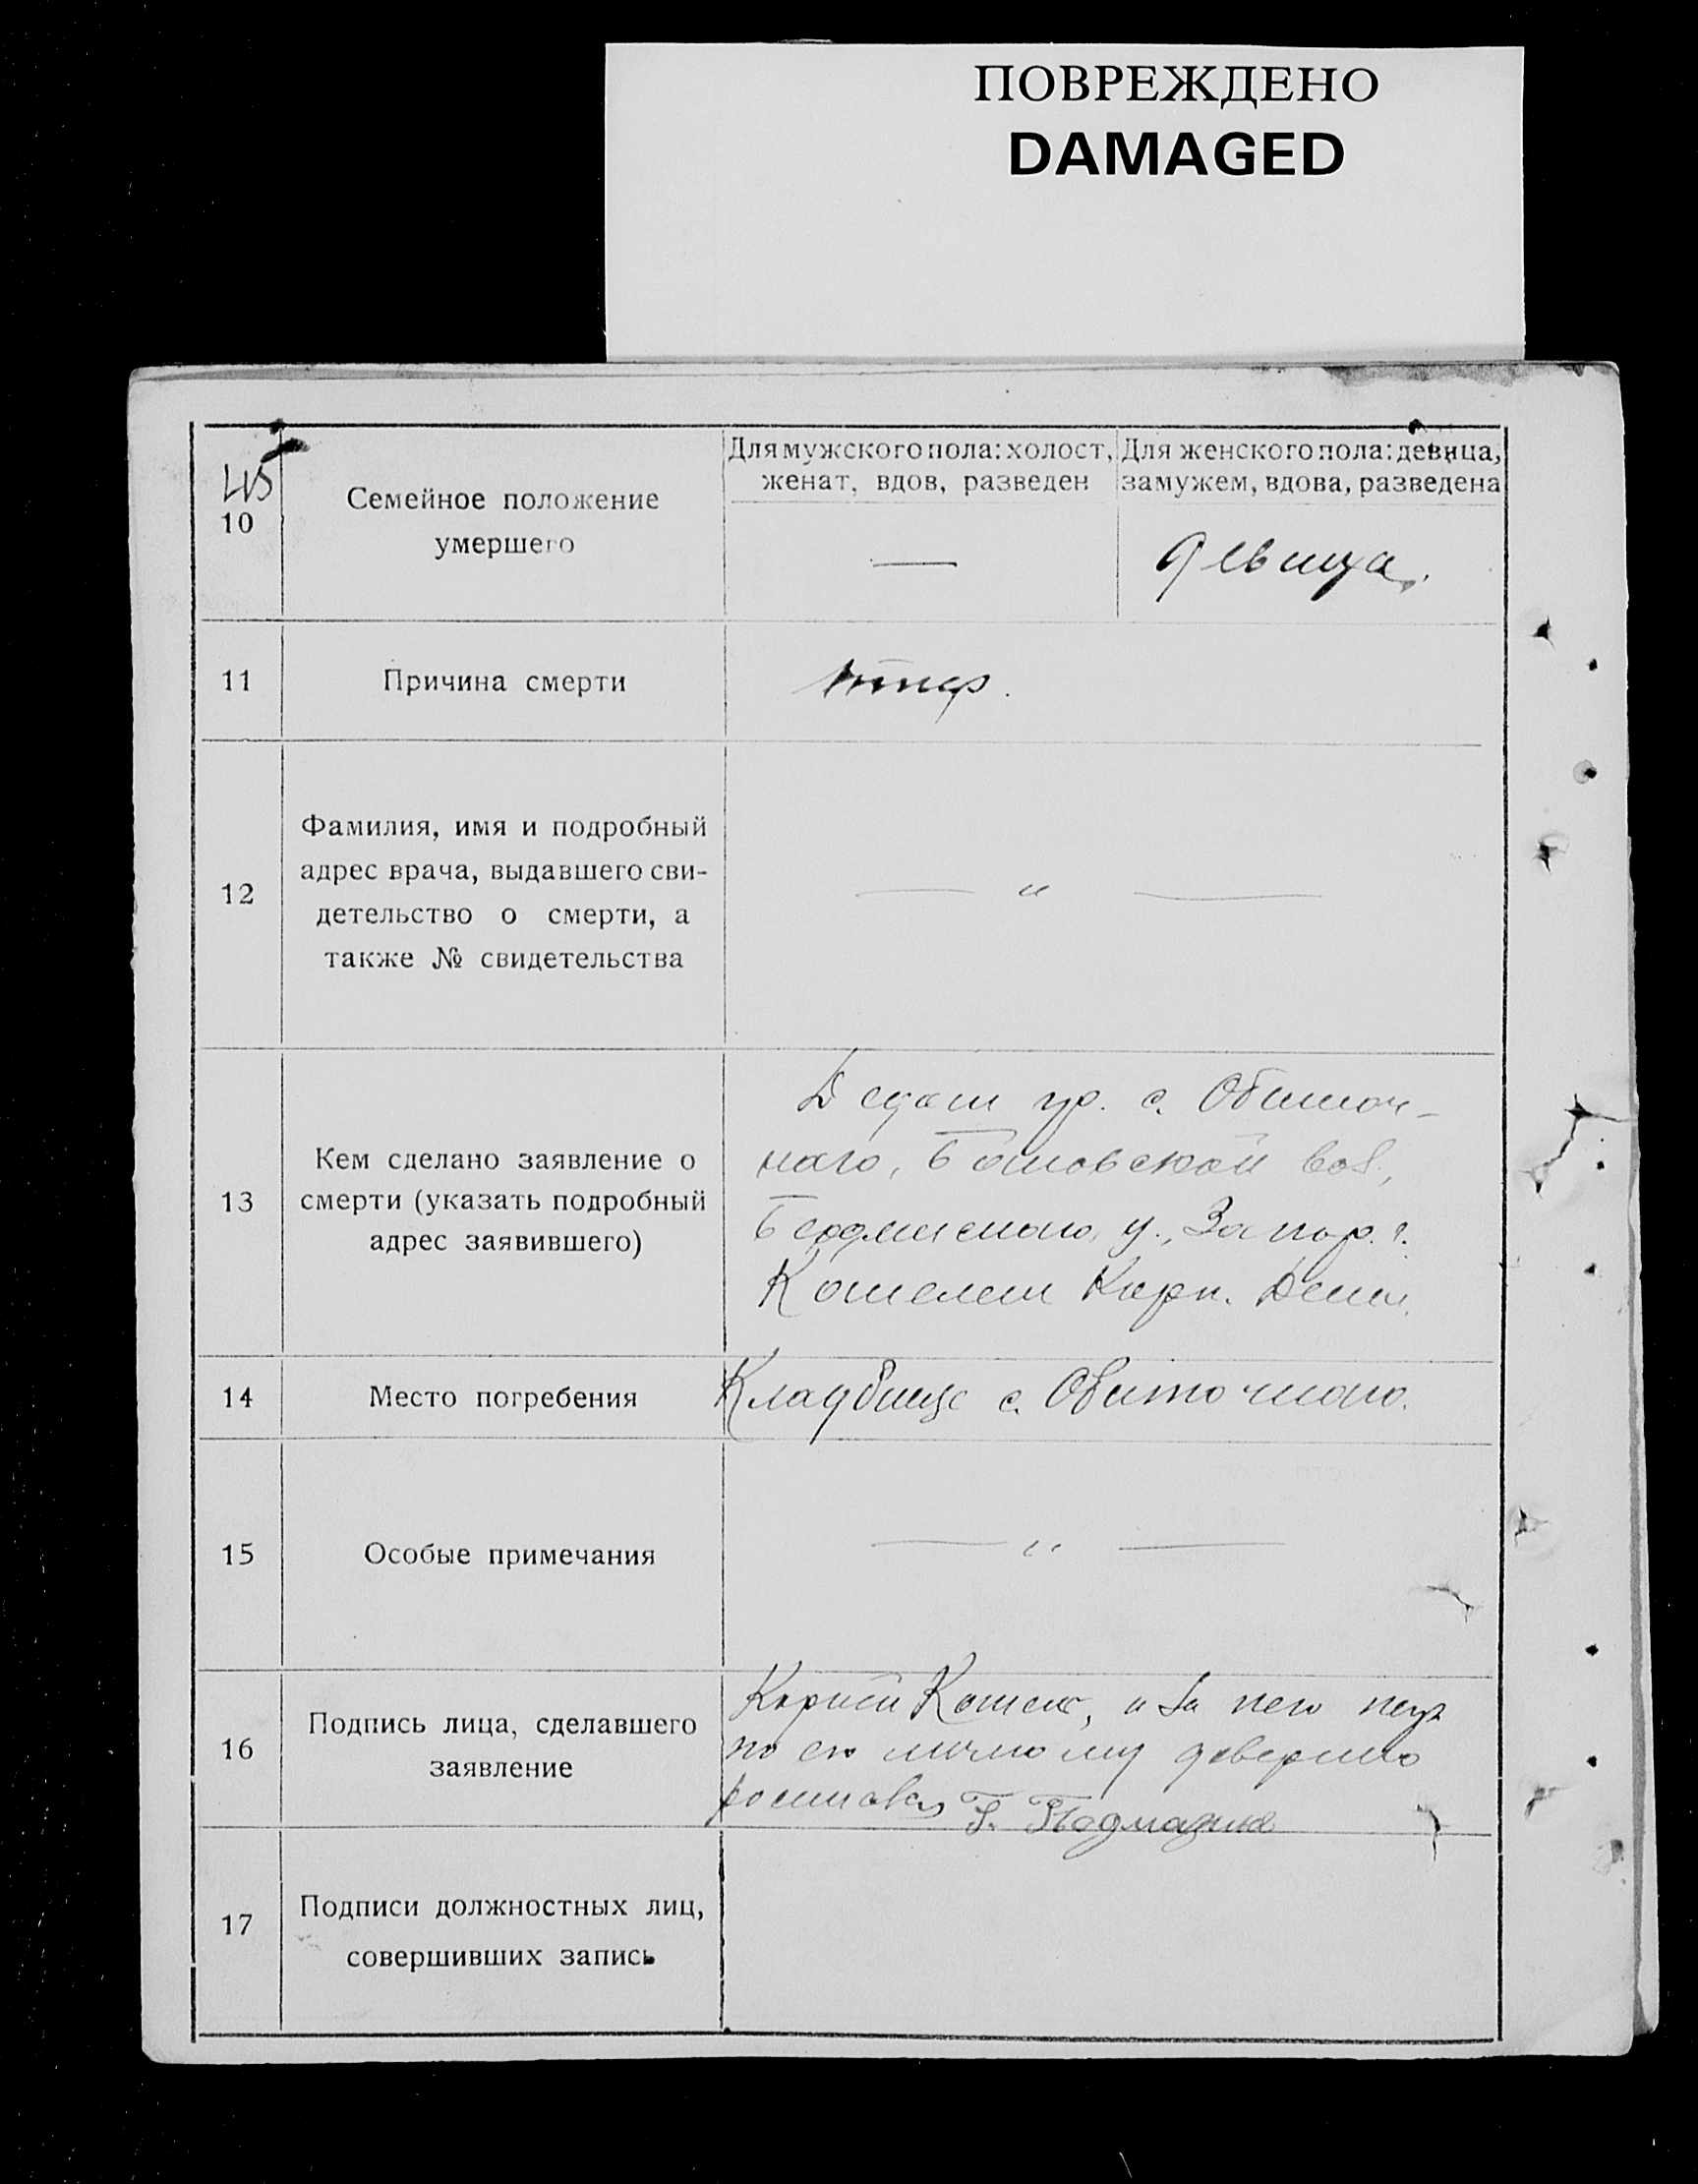 ПОВРЕЖДЕНО
DAMAGED
10
Семейное положение
умершего
Для мужского пола: холост,
женат, вдов, разведен
Для женского пола: девица,
замужем, вдова, разведена
—
девица.
11
Причина смерти
12
Фамилия, имя и подробный
адрес врача, выдавшего сви-
детельство о смерти, а
также № свидетельства
— " —
13
Кем сделано заявление о
смерти (указать подробный
адрес заявившего)
Дедом гр. с. Обиточ-
наго, вол.,
у., Запор. г.
Кошелем Карп.
14
Место погребения
Кладбище с. Обиточнаго.
15
Особые примечания
— " —
16
Подпись лица, сделавшего
заявление
Карпий Кошель, а за него негр.
по его личному доверию
Г.
17
Подписи должностных лиц,
совершивших запись